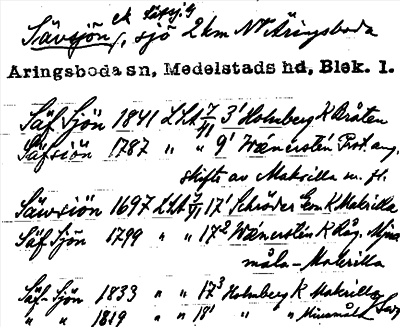 Sävsjön, sjö 2 km NV Åringsboda
Åringsboda sn, Medelstads hd, Blek. l.
Säf Sjön 1841 LSA 7/11 3' Holmberg K Bråten
Säfsiön 1787 " " 9' Wænersten Prot. ang.
skifte av Makrilla m. fl.
Säwsiön 1697 LSA 7/11 17' Schröder Geom K Makrilla
Säf Sjön 1799 " " 17² Wænersten K Råg.
måla - Makrilla
Säf-Sjön 1833 " " 17³ Holmberg K Makrilla
" " 1819 " " 18' " "